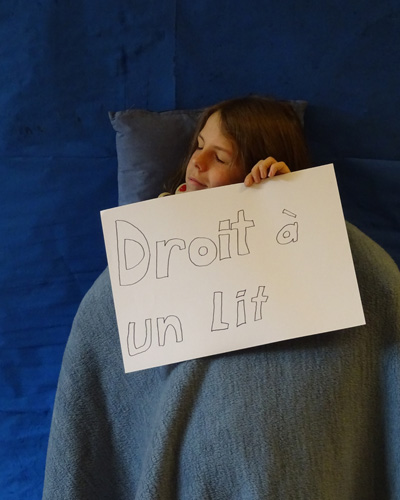 Droit à
un Lit